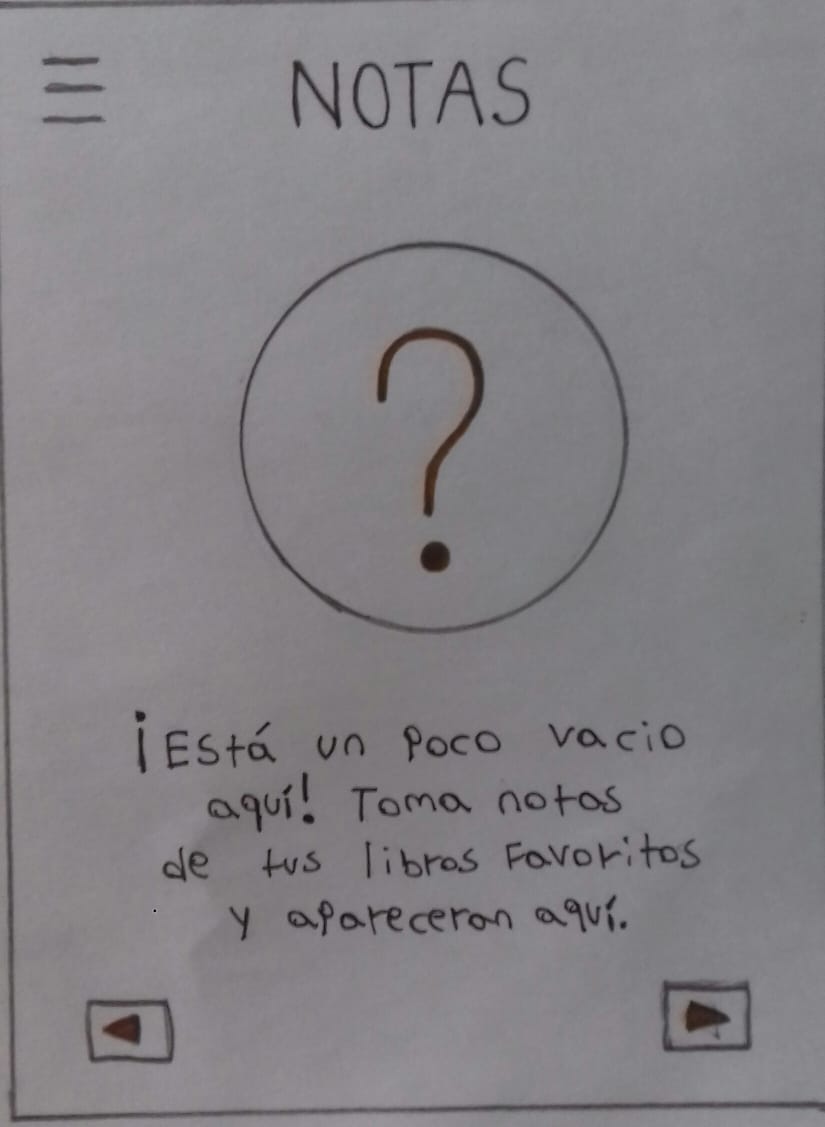 NOTAS
?
¡Está un poco vacio
aquí! Toma notas
de tus libros Favoritos
y apareceran aquí.